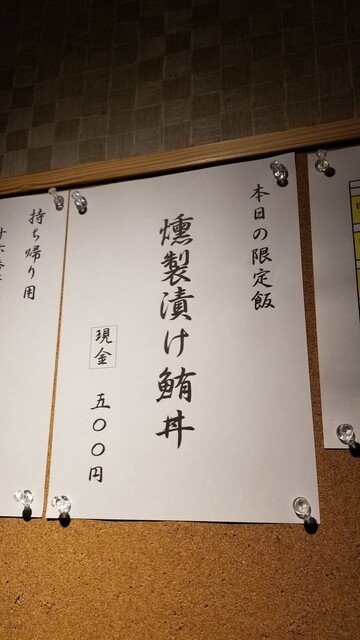 本日の限定飯
燻製漬け鮪丼
現金 五〇〇円
持ち帰り用